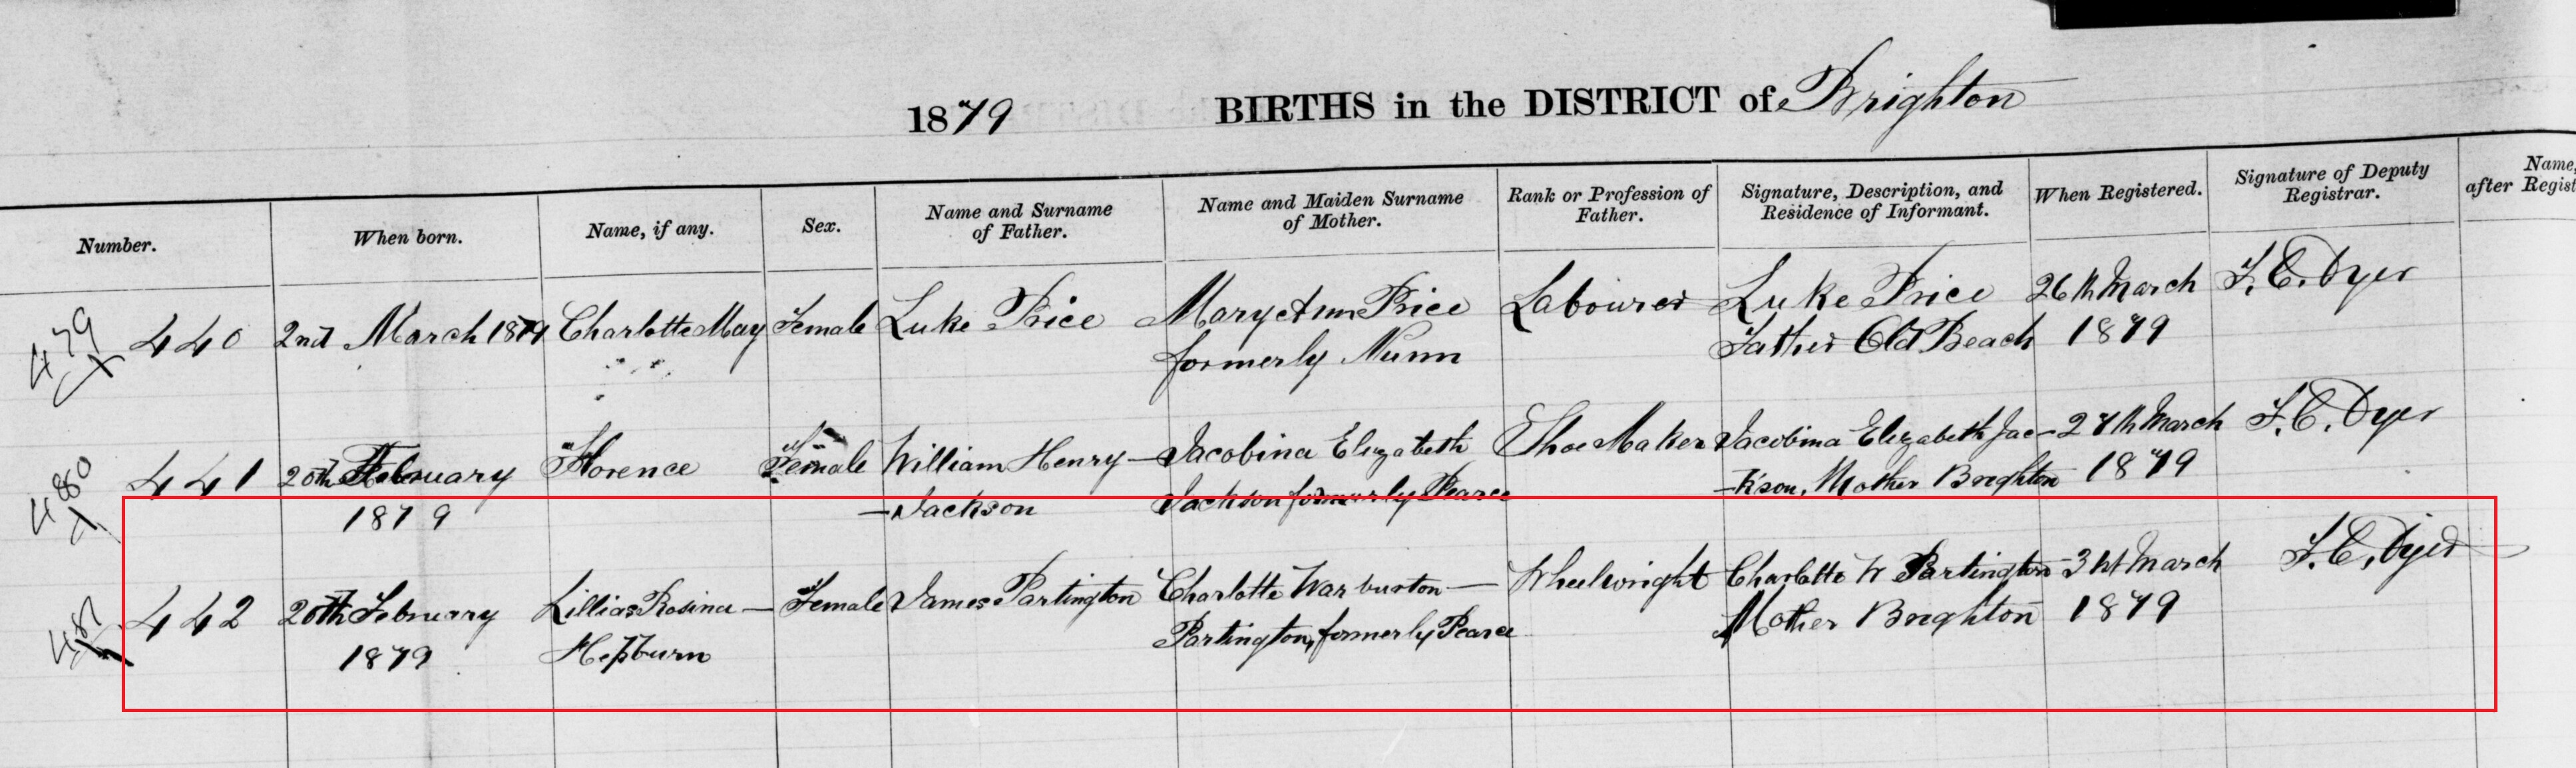 1879 BIRTHS in the DISTRICT of Brighton
Number. When born. Name, if any. Sex. Name and Surname of Father. Name and Maiden Surname of Mother. Rank or Profession of Father. Signature, Description, and Residence of Informant. When Registered. Signature of Deputy Registrar. Name, after Regist
479 440 2nd March 1879 Charlotte May Female Luke Price Mary Ann Price Labourer Luke Price 26th March F. C. Dyer
formerly Nunn Father Old Beach 1879
480 441 20th February Florence Female William Henry - Jacobina Elizabeth Shoe Maker Jacobina Elizabeth Jac- 27th March F. C. Dyer
1879 -Jackson Jackson formerly Pearce -kson, Mother Brighton 1879
481 442 20th February Lillias Rosina - Female James Partington Charlotte Warburton - Wheelwright Charlotte W Partington - 31st March F. C. Dyer
1879 Hepburn Partington, formerly Pearce Mother Brighton 1879